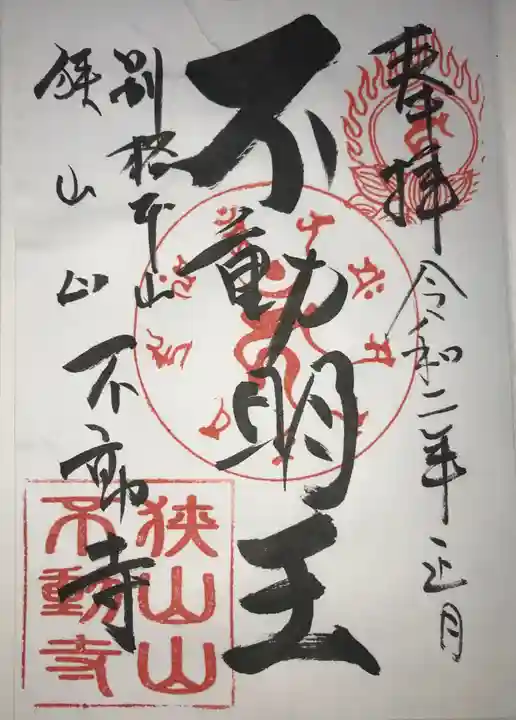 奉拝 令和二年 正月
不動明王
別格本山
狭山山 不動寺
狭山山
不動寺